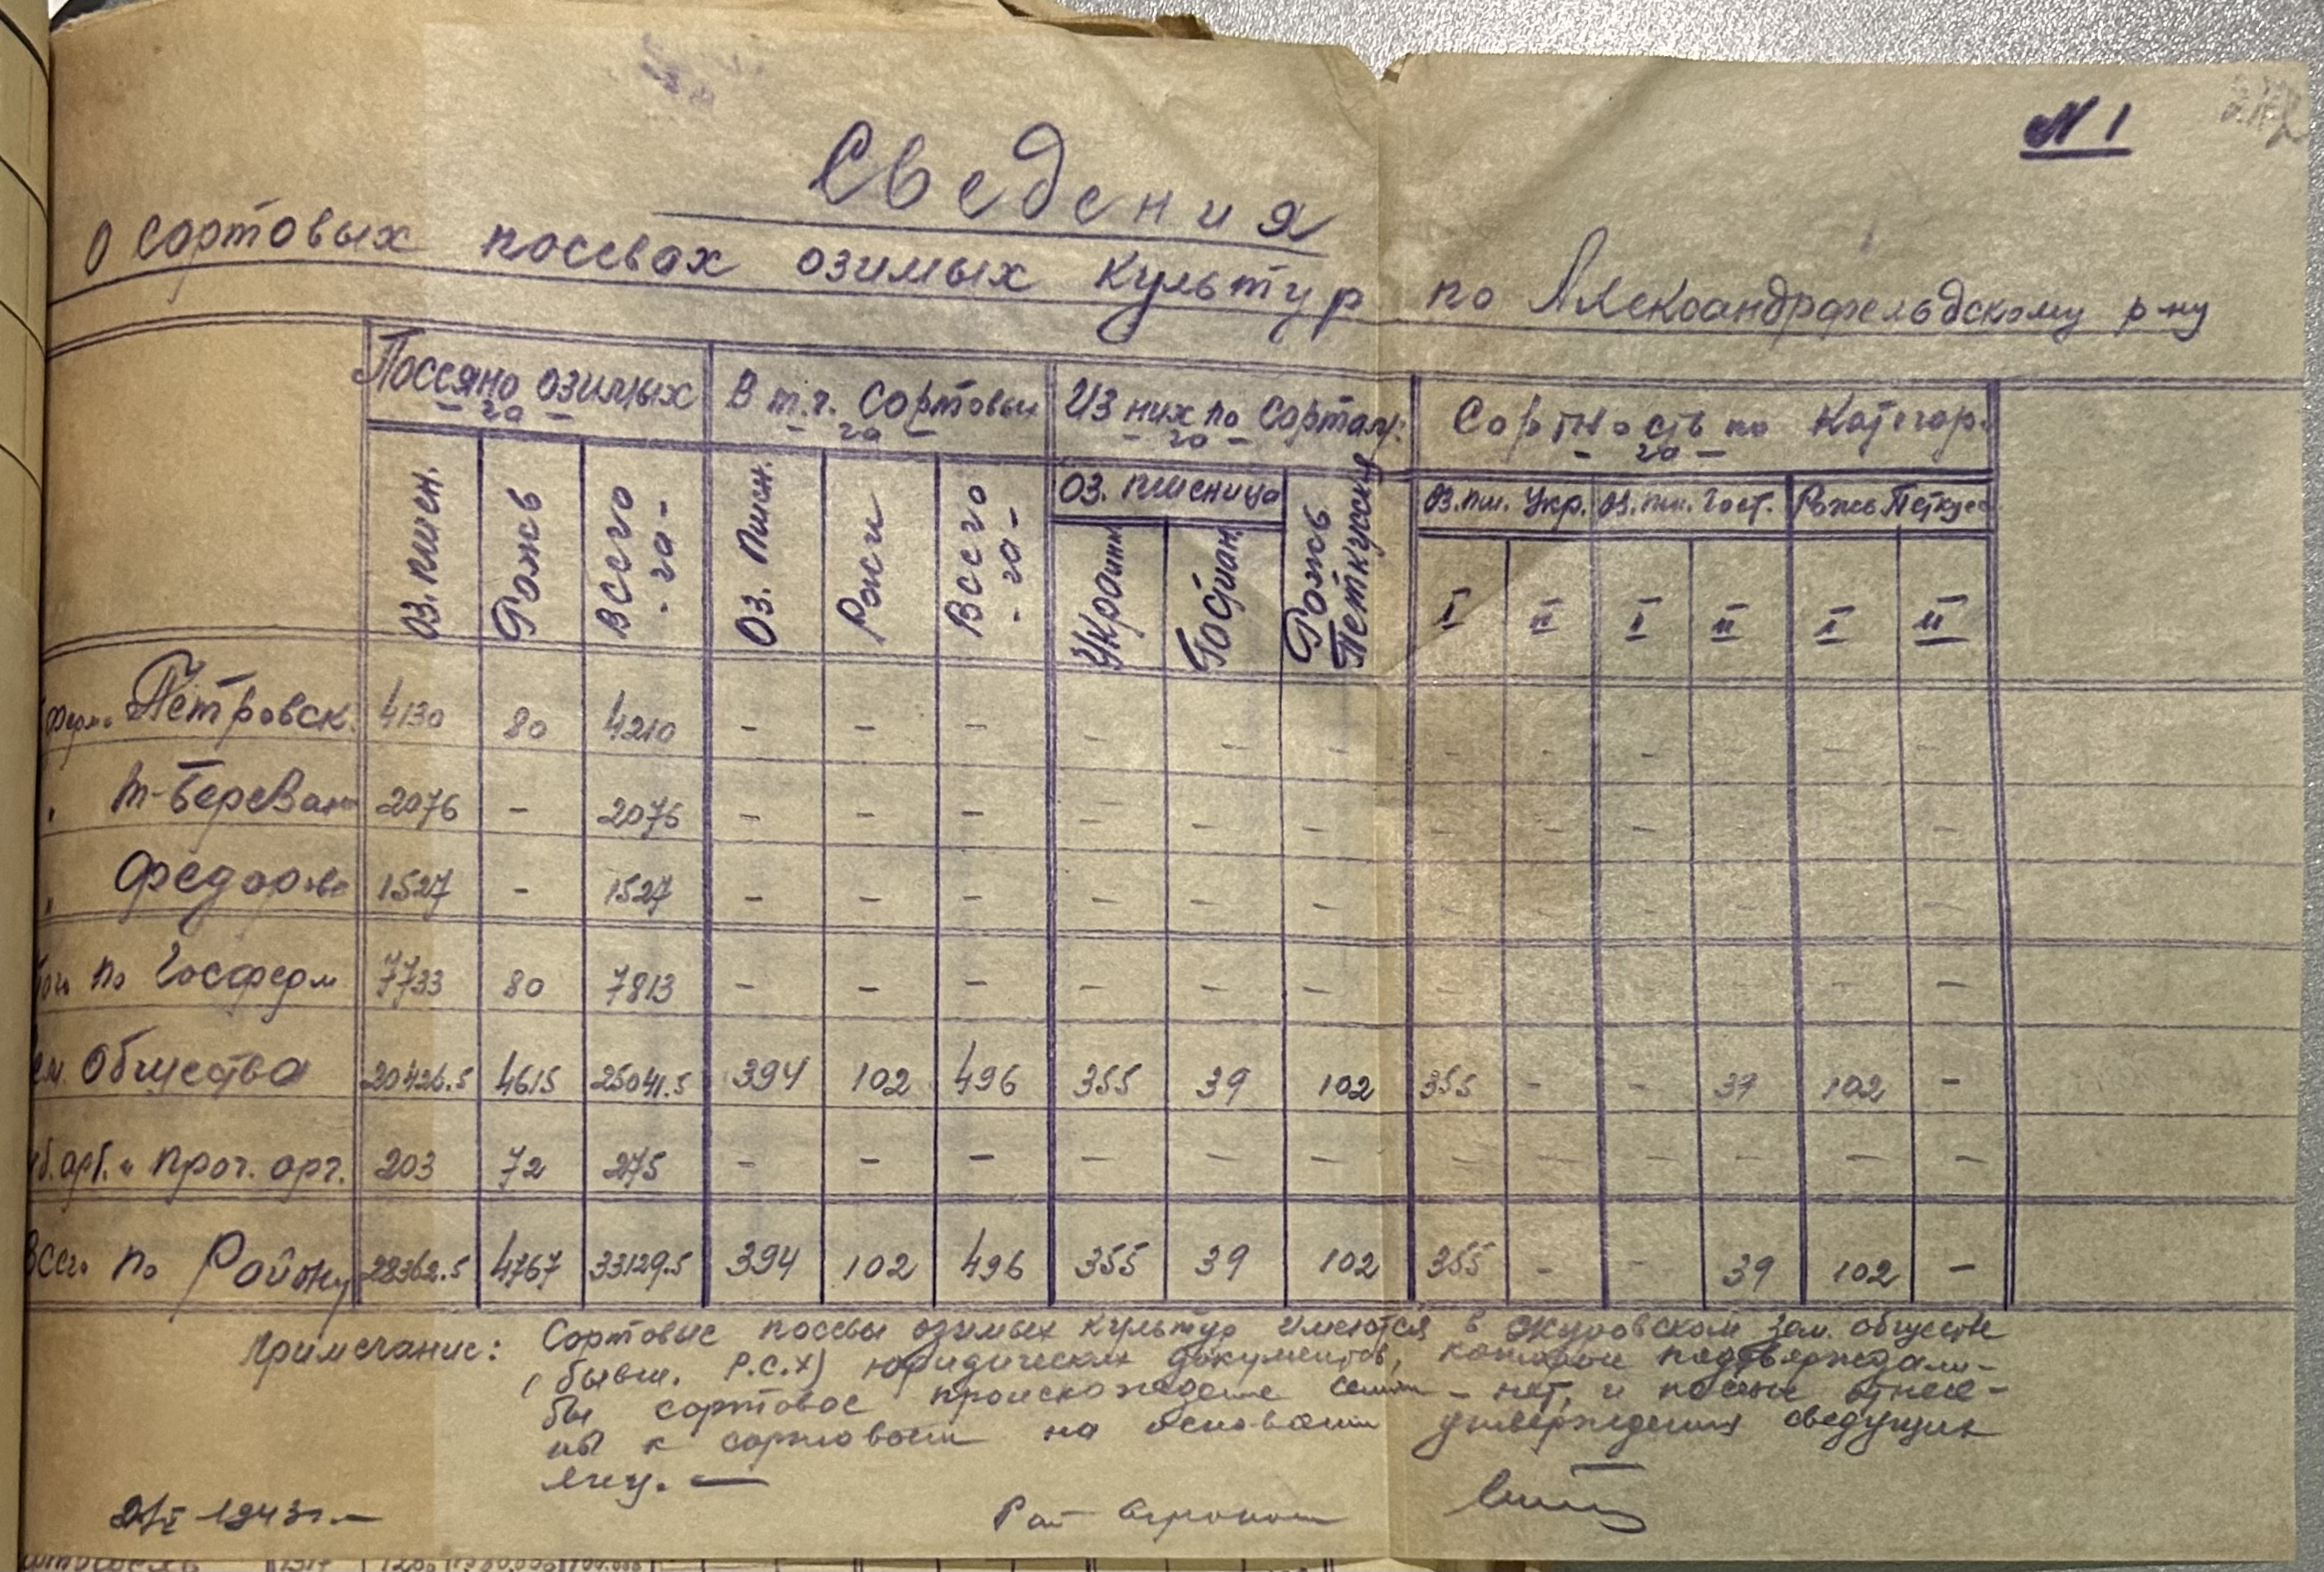 № 1
Сведения
О сортовых посевах озимых культур по Александрфельдскому р-ну
Посеяно озимых В т.ч. сортовых Из них по сортам: Сортность по категор.
- га - - га - - га - - га -
Оз. пшен. Рожь Всего - га - Оз. пшен. Рожи Всего - га - Оз. пшеница Рожь Петкусская Оз. пш. Укр. Оз. пш. Гост. Рожь Петкус.
Украинк Гостиан. I II I II I II
ферма Петровск. 4130 80 4210 - - - - - - - - - - - -
" Т-Березан 2076 - 2076 - - - - - - - - - - -
" Федоровс 1527 - 1527 - - - - - - - - - - - -
по Госферм 7733 80 7813 - - - - - - -
Общества 20426.5 4615 25041.5 394 102 496 355 39 102 355 - - 39 102 -
и проч. орг. 203 72 275 - - - - - - - - - - - -
Всего по Району 28362.5 4767 33129.5 394 102 496 355 39 102 355 - - 39 102 -
Примечание: Сортовые посевы озимых культур имеются в зем. обществе
(бывш. Р.С.Х) юридических документов, которые подтверждали-
бы сортовое происхождение семян - нет, и посевы отнесе-
ны к сортовым на основании утверждения сведущих
лиц. —
1943 г. —
Рай Агроном